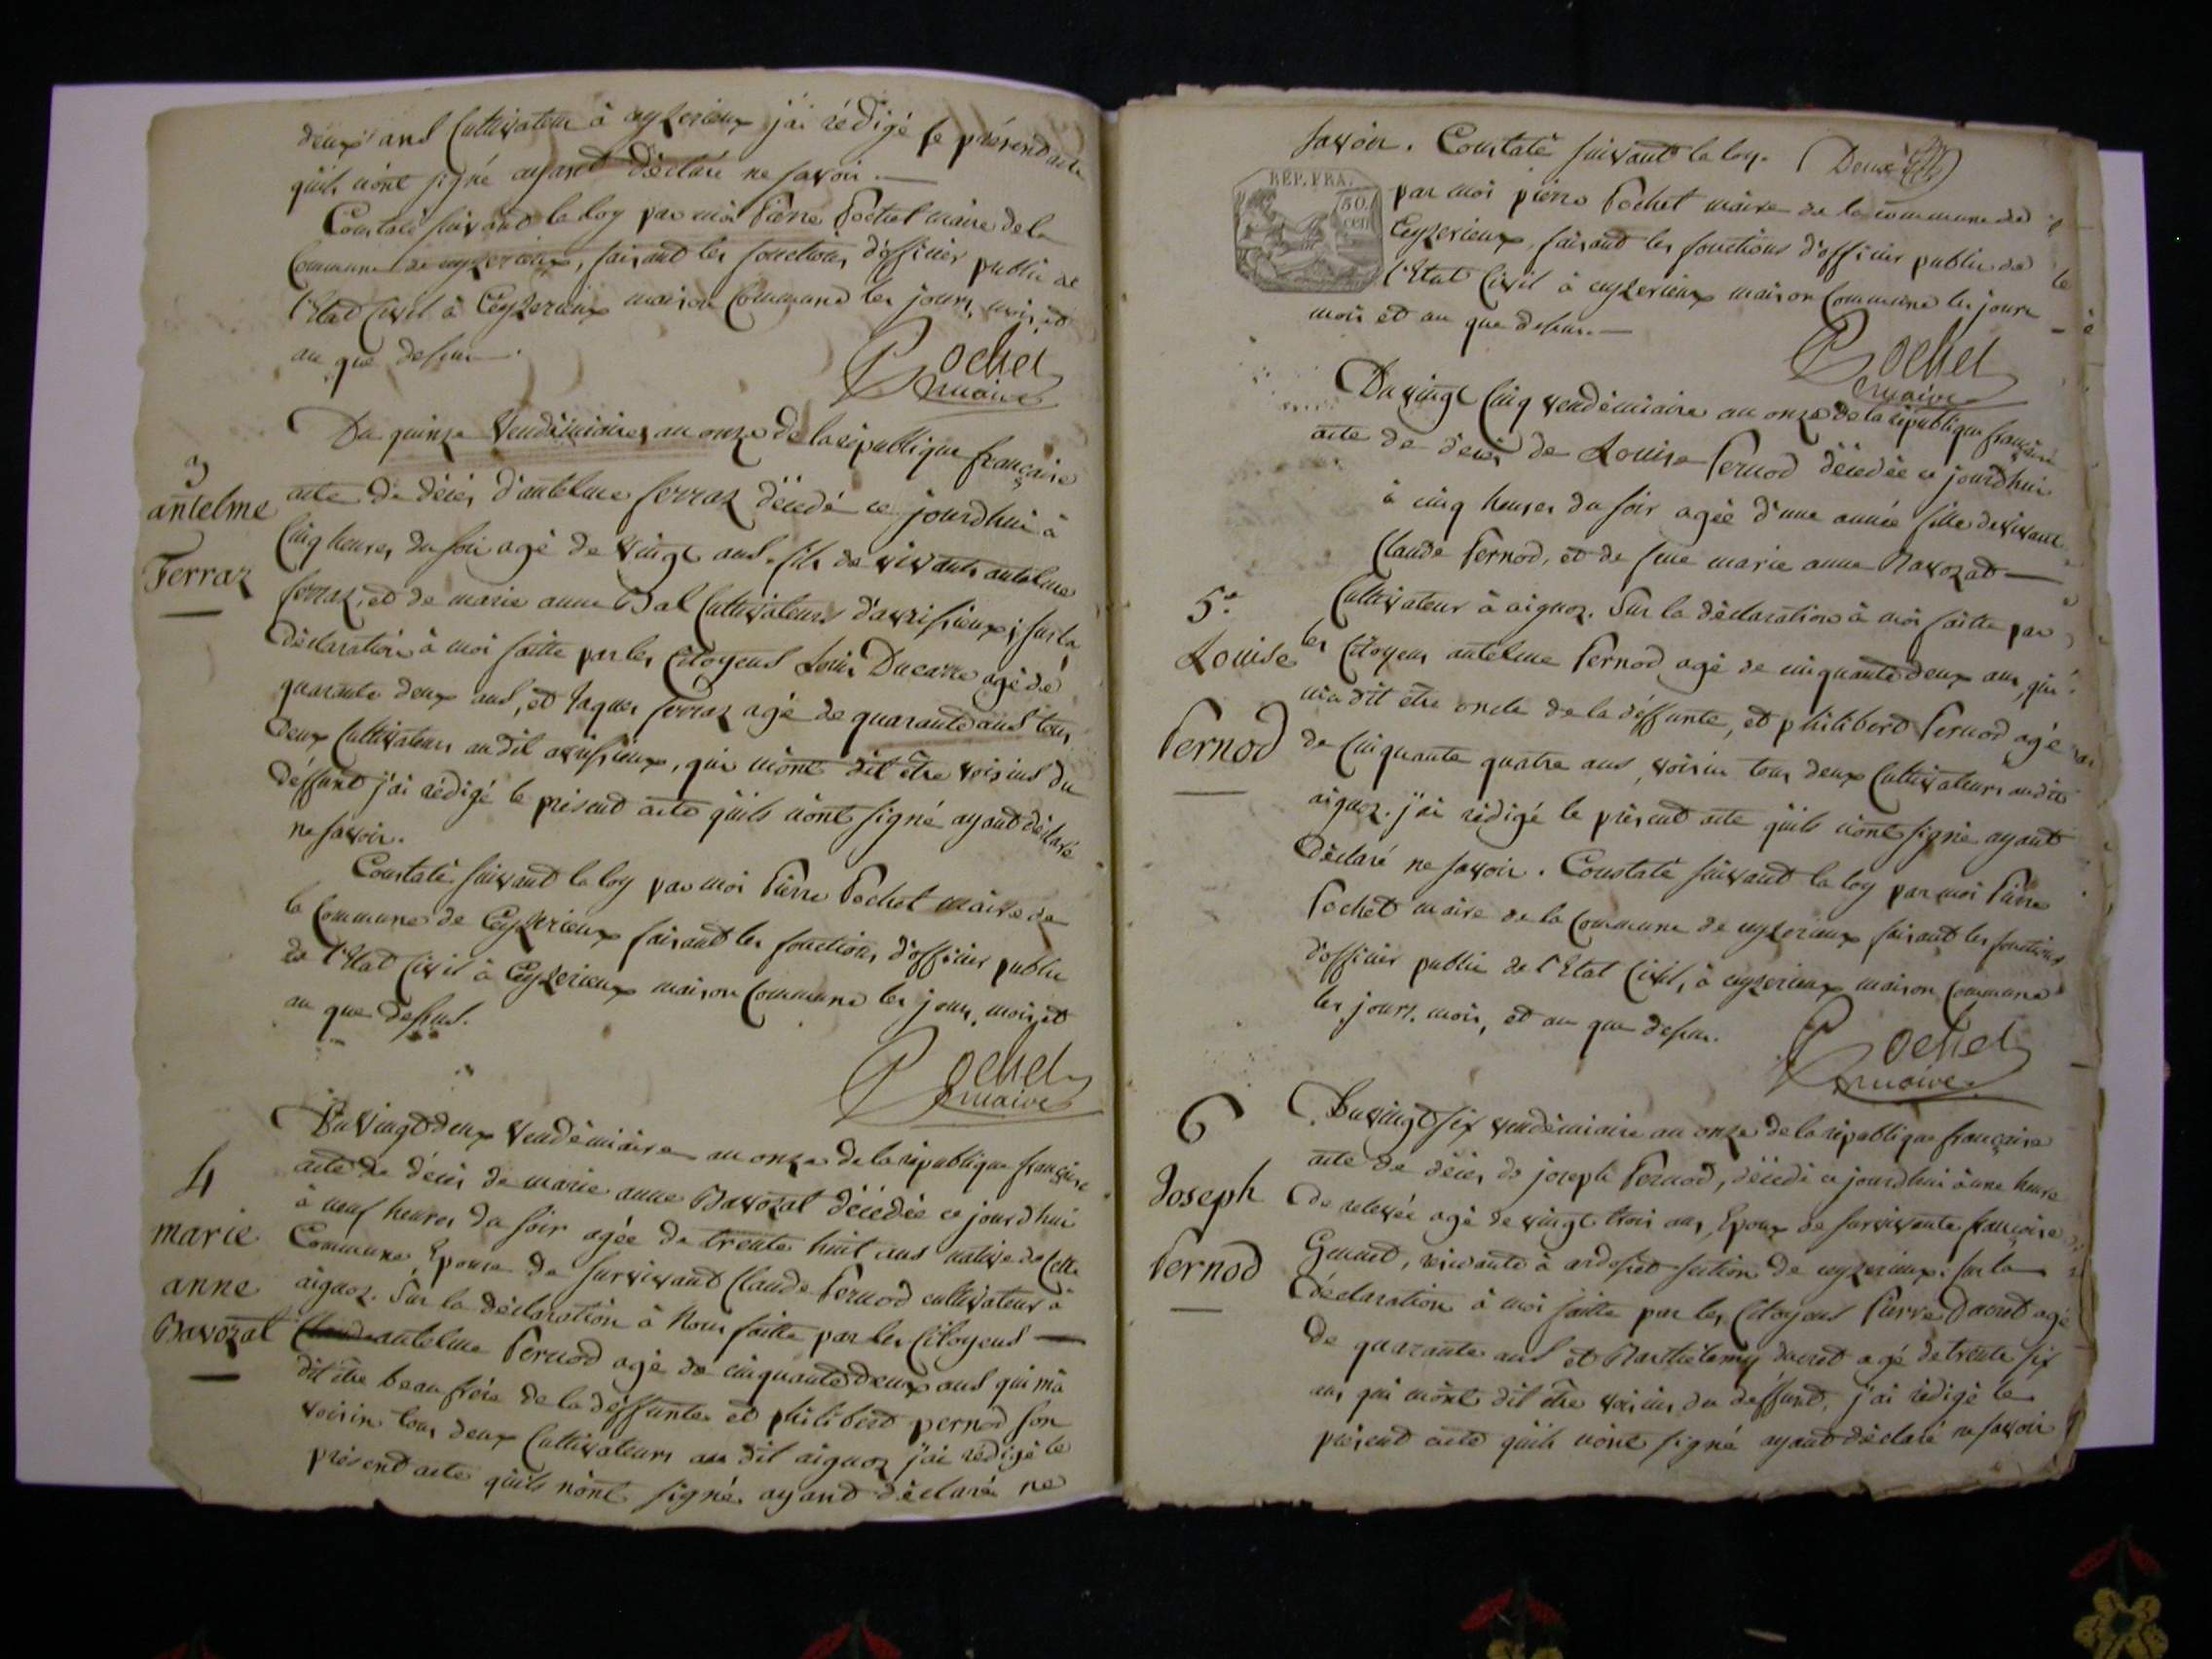 deux ans Cultivateur à ceyzerieux j'ai rédigé le présent acte
qu'ils n'ont signé ayant déclaré ne savoir. —
Constaté suivant la loy par moi Pierre Pochet maire de la
Commune de ceyzerieux, faisant les fonctions d'officier public de
l'Etat Civil à Ceyzerieux maison Commune les jours, mois, et
an que dessus.
Pochet
maire
3
antelme
Ferraz
Du quinze Vendémiaire an onze de la république française
acte de décès d'antelme ferraz décédé ce jourdhui à
Cinq heures du soir agé de vingt ans. fils de vivants antelme
ferraz, et de marie anne Bal Cultivateurs d'avrissieux; sur la
déclaration à moi faitte par les Citoyens Louis Ducarre agé de
quarante deux ans, et Jaques ferraz agé de quarante ans tous
deux Cultivateurs audit avrissieux, qui m'ont dit être voisins du
déffunt j'ai rédigé le présent acte qu'ils n'ont signé ayant déclaré
ne savoir.
Constaté suivant la loy par moi Pierre Pochet maire de
la Commune de Ceyzerieux faisant les fonctions d'officier public
de l'Etat Civil à Ceyzerieux maison Commune les jours, mois, et
an que dessus.
Pochet
maire
4
marie
anne
Bavozat
Du Vingt deux Vendémiaire an onze de la république française
acte de décès de marie anne Bavozat décédée ce jourdhui
à neuf heures du soir agée de trente huit ans native de Cette
Commune, Epouse de survivant Claude Pernod cultivateur à
aignoz. Sur la déclaration à Nous faitte par les Citoyens —
Claude antelme Pernod agé de cinquante deux ans qui m'a
dit être beau frére de la déffunte et philibert pernod son
voisin tous deux Cultivateurs au dit aignoz j'ai rédigé le
présent acte qu'ils n'ont signé ayant déclaré ne
savoir. Constaté suivant la loy. Deux
REP. FRA.
50
cen
par moi pierre Pochet maire de la commune de
Ceyzerieux, faisant les fonctions d'officier public de
l'Etat Civil à ceyzerieux maison Commune les jours
mois et an que dessus. —
Pochet
maire
Du vingt Cinq vendémiaire an onze de la république française
acte de décès de Louise Pernod décédée ce jourdhui
à cinq heures du soir agée d'une année fille de vivant
Claude Pernod, et de feue marie anne Bavozat —
5e
Louise
Pernod
Cultivateur à aignoz. Sur la déclaration à moi faitte par
les Citoyens antelme Pernod agé de cinquante deux ans, qui
m'a dit être oncle de la déffunte, et philibert Pernod agé
de Cinquante quatre ans, voisin tous deux Cultivateurs audit
aignoz. j'ai rédigé le présent acte qu'ils n'ont signé ayant
Déclaré ne savoir. Constaté suivant la loy par moi Pierre
Pochet maire de la Commune de ceyzerieux faisant les fonctions
d'officier public de l'Etat Civil, à ceyzerieux maison Commune
les jours, mois, et an que dessus.
Pochet
maire
6
Joseph
Pernod
Du vingt six vendémiaire an onze de la république française
acte de décès de joseph Pernod, décédé ce jourdhui à une heure
de relevée agé de vingt trois ans, Epoux de survivante françoise
résidante à ardosset section de ceyzerieux; sur la
déclaration à moi faitte par les Citoyens Pierre agé
de quarante ans et Barthélemy ducret agé de trente six
ans, qui m'ont dit être voisins du déffunt, j'ai rédigé le
présent acte qu'ils n'ont signé ayant déclaré ne savoir